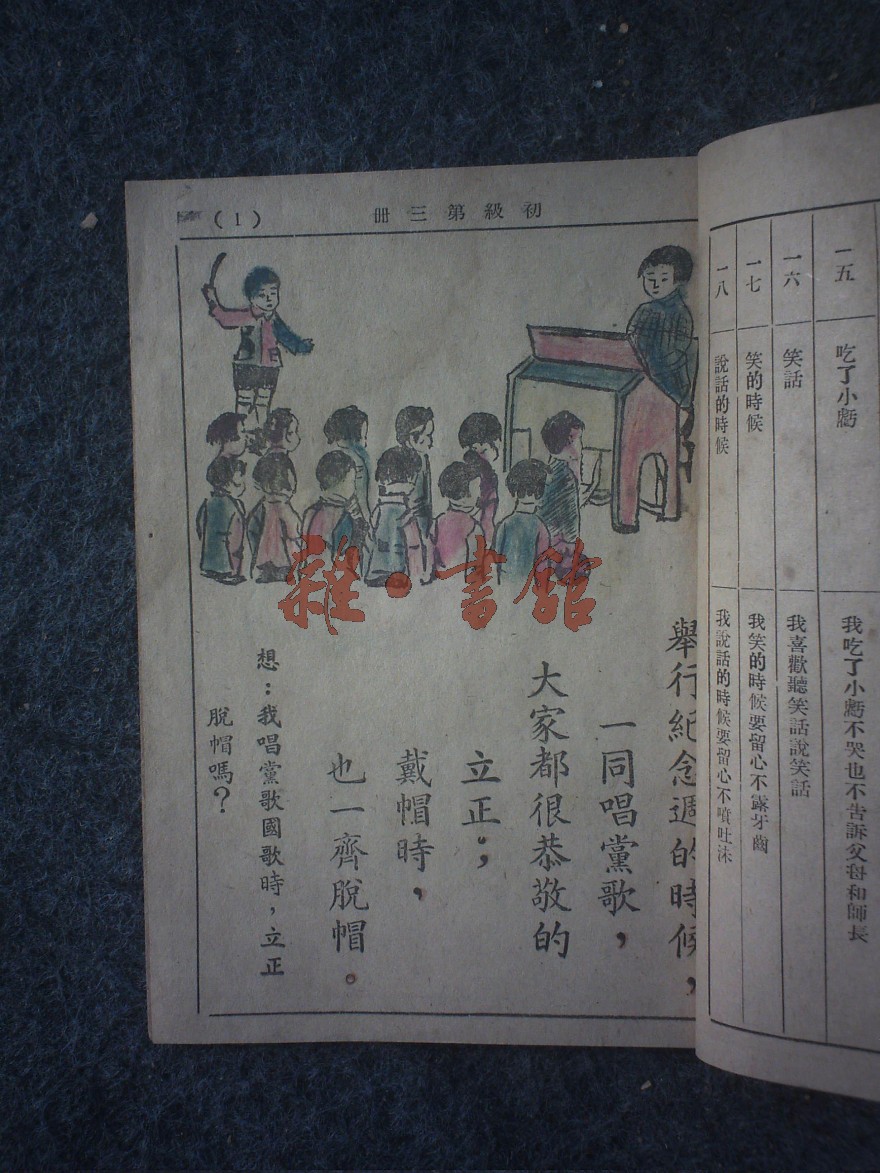 一五
吃了小虧
我吃了小虧不哭也不告訴父母和師長
一六
笑話
我喜歡聽笑話說笑話
一七
笑的時候
我笑的時候要留心不露牙齒
一八
說話的時候
我說話的時候要留心不噴吐沫
初級第三冊
(1)
舉行紀念週的時候，
一同唱黨歌，
大家都很恭敬的
立正；
戴帽時，
也一齊脫帽。
想：我唱黨歌國歌時，立正
脫帽嗎？
雜·書館